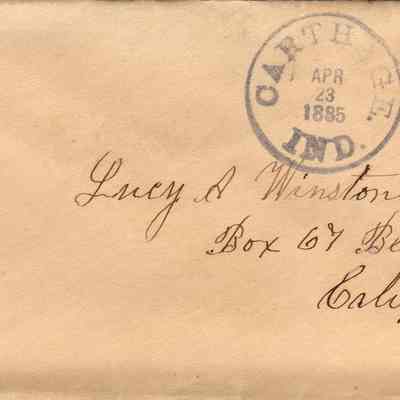 CARTHAGE.
APR
23
1885
IND.
Lucy A Winston
Box 67 Be
Cali